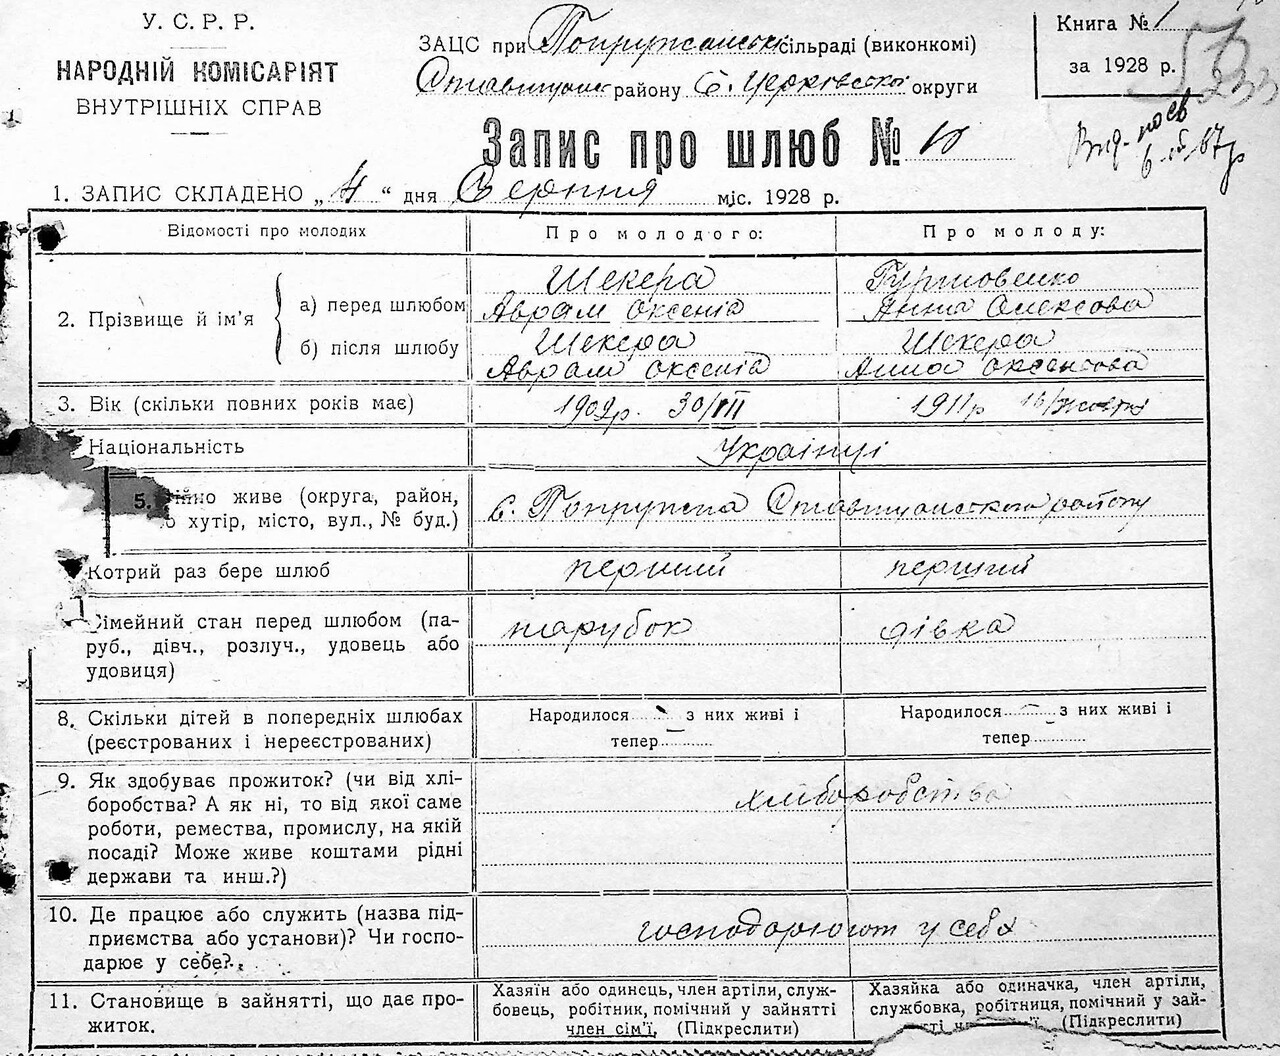 У. С. Р. Р.
НАРОДНІЙ КОМІСАРІЯТ
ВНУТРІШНІХ СПРАВ
ЗАЦС при Попружанській сільраді (виконкомі)
району Б. Церківської округи
Книга № 1
за 1928 р.
Запис про шлюб № 10
1. ЗАПИС СКЛАДЕНО „4“ дня Серпня міс. 1928 р.
Відомості про молодих Про молодого: Про молоду:
2. Прізвище й ім'я
а) перед шлюбом Шекера
Аврам Оксенів Анна Олексова
б) після шлюбу Шекера Шекера
Аврам Оксенів Анна
3. Вік (скільки повних років має) 1909р. 1911р 16/жовтня
Національність Українці
5. ійно живе (округа, район,
хутір, місто, вул., № буд.) с. Попружна Ставищанского району
Котрий раз бере шлюб перший перший
імейний стан перед шлюбом (па- парубок дівка
руб., дівч., розлуч., удовець або
удовиця)
8. Скільки дітей в попередніх шлюбах Народилося з них живі і Народилося з них живі і
(реєстрованих і нереєстрованих) тепер тепер
9. Як здобуває прожиток? (чи від хлі- хліборобства
боробства? А як ні, то від якої саме
роботи, ремества, промислу, на якій
посаді? Може живе коштами рідні
держави та инш.?)
10. Де працює або служить (назва під- господарюют у себя
приємства або установи)? Чи госпо-
дарює у себе?
11. Становище в зайнятті, що дає про-
житок.
Хазяїн або одинець, член артіли, служ-
бовець, робітник, помічний у зайнятті
член сім'ї, (Підкреслити)
Хазяйка або одиначка, член артіли,
службовка, робітниця, помічний у зай-
(Підкреслити)